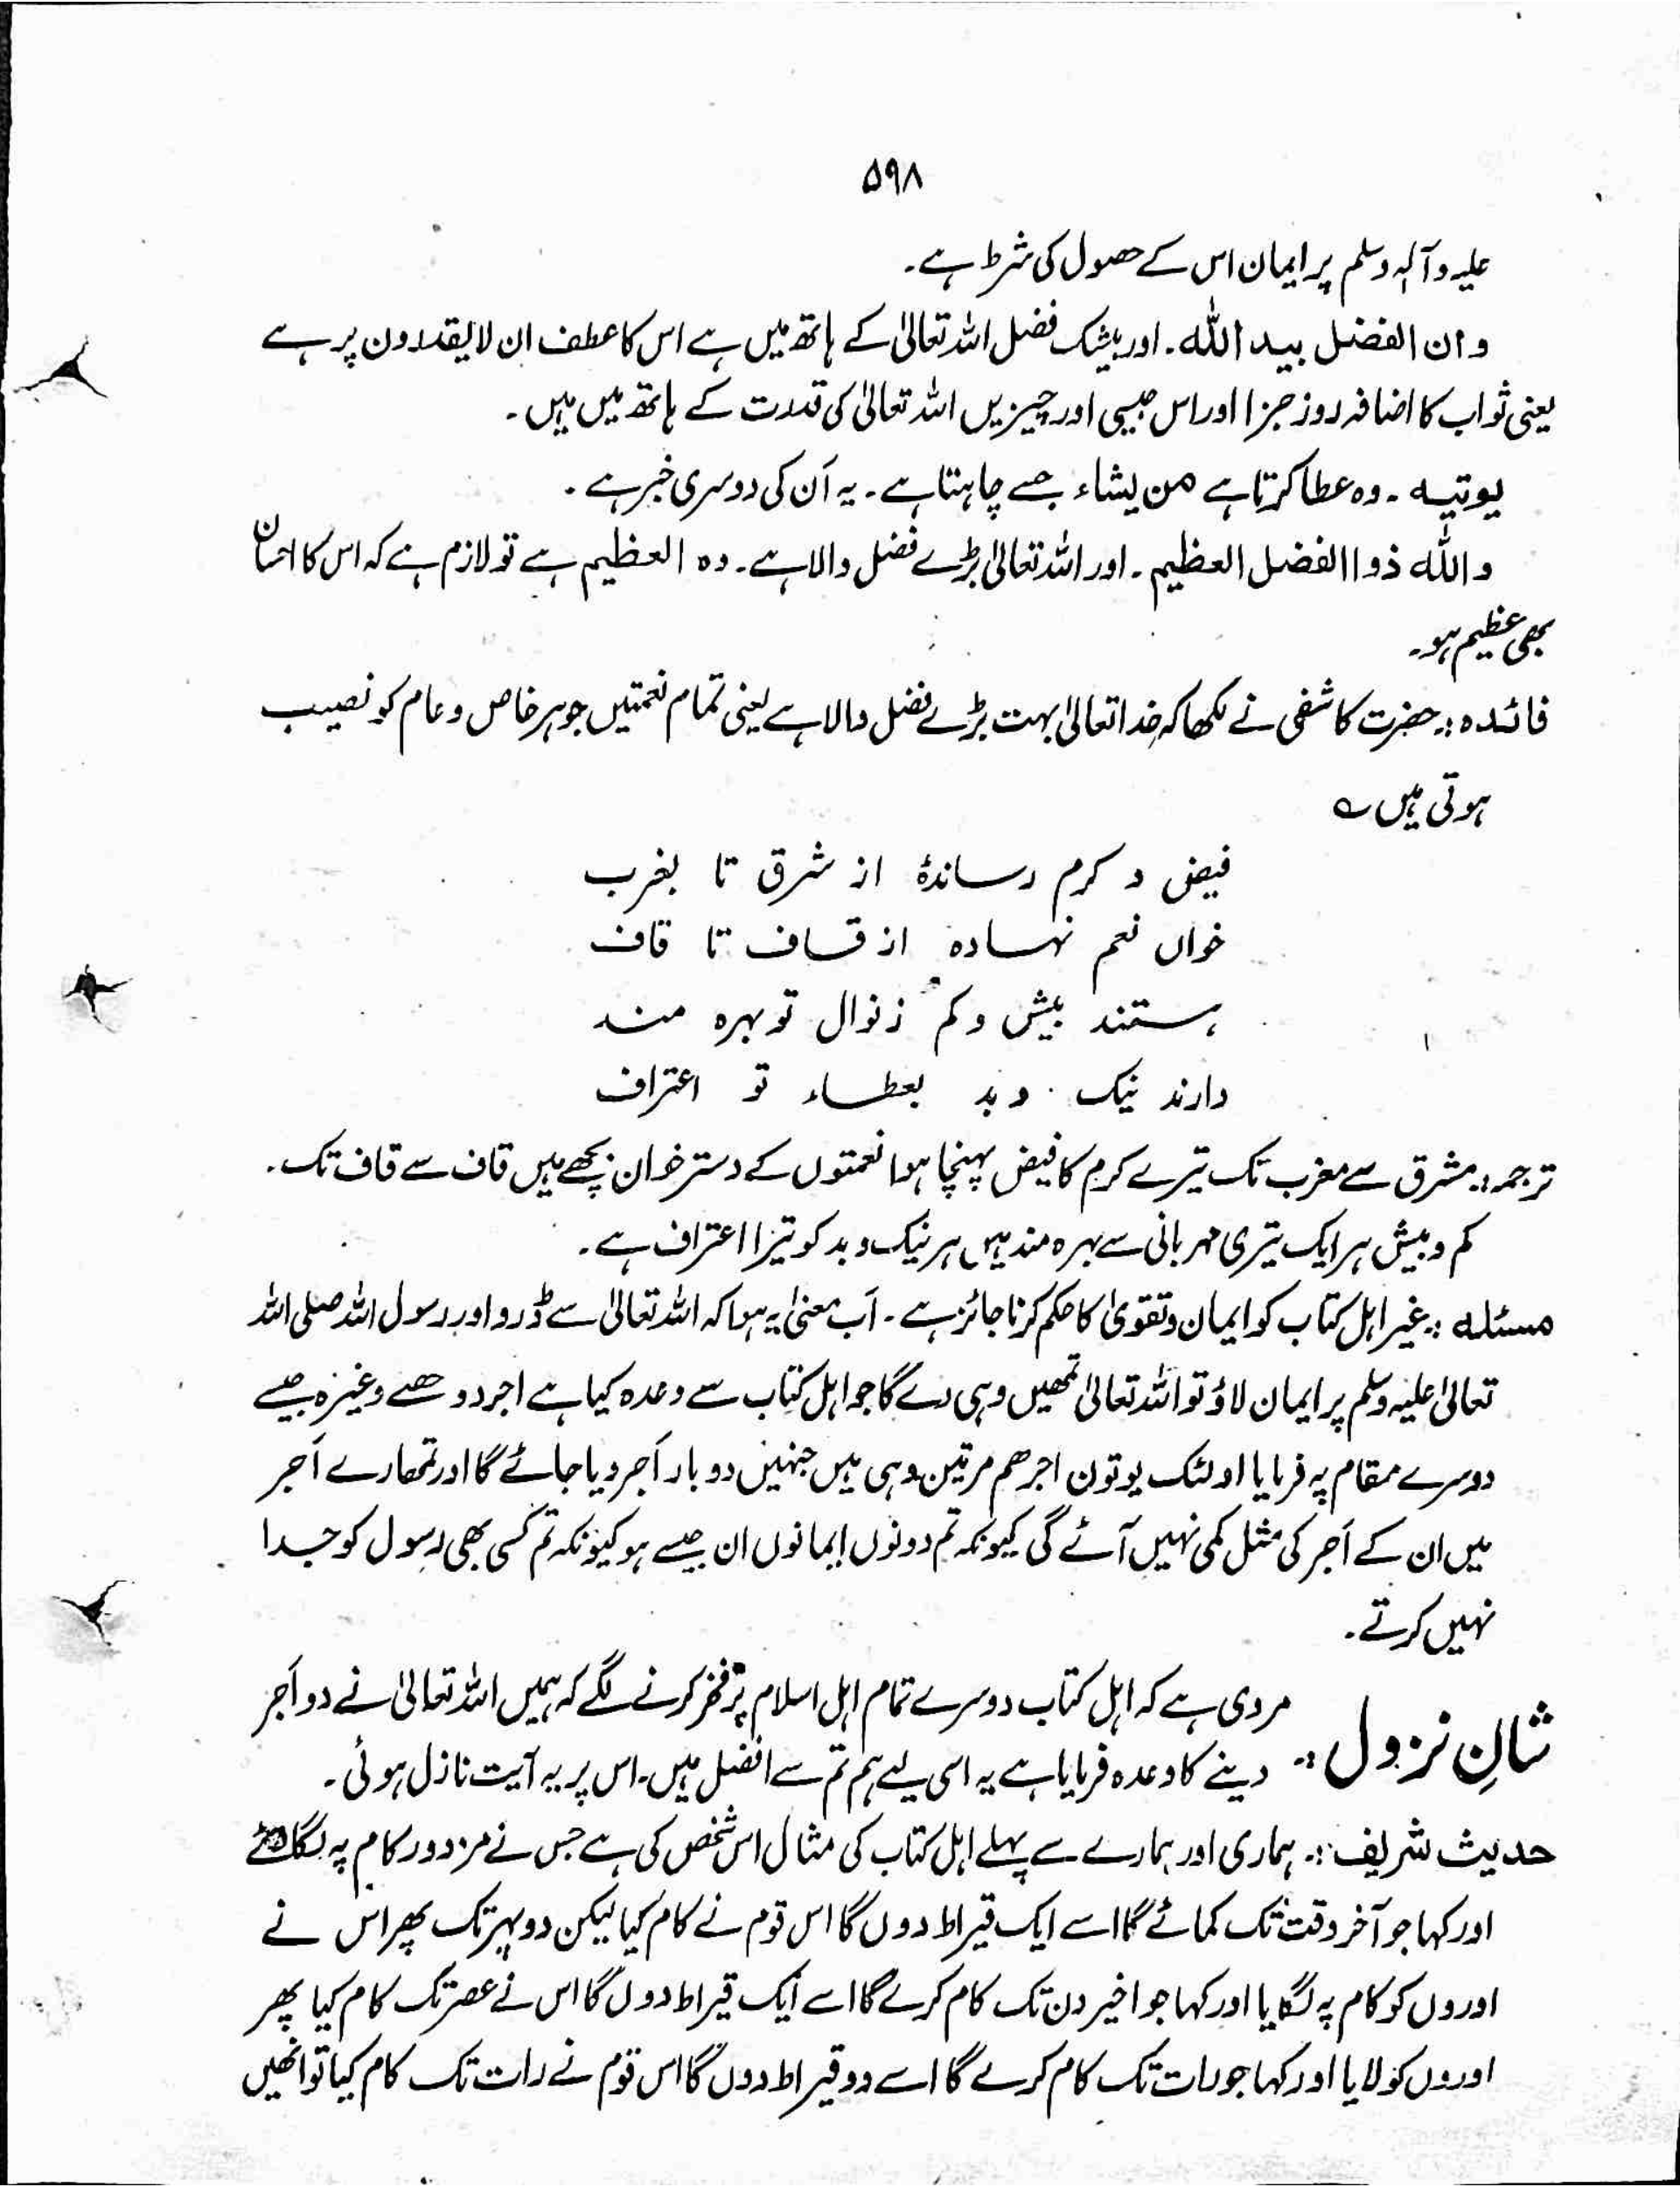 ۵۹۸
علیہ وآلہٖ وسلم پر ایمان اس کے حصول کی شرط ہے۔
و ان الفضل بید اللّٰہ۔ اور بیشک فضل اللہ تعالیٰ کے ہاتھ میں ہے اس کا عطف ان لا یقدرون پر ہے
یعنی ثواب کا اضافہ روز جزا اور اس جیسی اور چیزیں اللہ تعالیٰ کی قدرت کے ہاتھ میں ہیں۔
یوتیہ ۔ وہ عطا کرتا ہے من یشاء جسے چاہتا ہے ۔ یہ اَن کی دوسری خبر ہے ۔
و اللّٰہ ذوا الفضل العظیم ۔ اور اللہ تعالیٰ بڑے فضل والا ہے ۔ وہ العظیم ہے تو لازم ہے کہ اس کا احسان
بھی عظیم ہو۔
فائدہ :۔ حضرت کاشفی نے لکھا کہ خدا تعالیٰ بہت بڑے فضل والا ہے یعنی تمام نعمتیں جو ہر خاص و عام کو نصیب
ہوتی ہیں ؎
فیض و کرم رساندۂ از شرق تا بغرب
خواں نعم نہادہ از قاف تا قاف
ہستند بیش و کم ز نوال تو بہرہ مند
دارند نیک و بد بعطاء تو اعتراف
ترجمہ :۔ مشرق سے مغرب تک تیرے کرم کا فیض پہنچا ہوا نعمتوں کے دستر خوان بچھے ہیں قاف سے قاف تک ۔
کم و بیش ہر ایک تیری مہربانی سے بہرہ مند ہیں ہر نیک و بد کو تیرا اعتراف ہے ۔
مسئلہ :۔ غیر اہل کتاب کو ایمان و تقویٰ کا حکم کرنا جائز ہے ۔ اَب معنیٰ یہ ہوا کہ اللہ تعالیٰ سے ڈرو اور رسول اللہ صلی اللہ
تعالیٰ علیہ وسلم پر ایمان لاؤ تو اللہ تعالیٰ تمھیں وہی دے گا جو اہل کتاب سے وعدہ کیا ہے اجر دو حصے وغیرہ جیسے
دوسرے مقام پہ فرمایا اولئک یوتون اجرھم مرتین وہی ہیں جنہیں دو بار اَجر دیا جائے گا اور تمھارے اَجر
میں ان کے اَجر کی مثل کمی نہیں آئے گی کیونکہ تم دونوں ایمانوں ان جیسے ہو کیونکہ تم کسی بھی رسول کو جدا
نہیں کرتے ۔
شانِ نزول :۔ مروی ہے کہ اہل کتاب دوسرے تمام اہل اسلام پر فخر کرنے لگے کہ ہمیں اللہ تعالیٰ نے دو اَجر
دینے کا وعدہ فرمایا ہے یہ اسی لیے ہم تم سے افضل ہیں۔ اس پر یہ آیت نازل ہوئی ۔
حدیث شریف :۔ ہماری اور ہمارے سے پہلے اہل کتاب کی مثال اس شخص کی ہے جس نے مزدور کام پہ لگائے
اور کہا جو آخر وقت تک کمائے گا اسے ایک قیراط دوں گا اس قوم نے کام کیا لیکن دوپہر تک پھر اس نے
اوروں کو کام پہ لگایا اور کہا جو اخیر دن تک کام کرے گا اسے ایک قیراط دوں گا اس نے عصر تک کام کیا پھر
اوروں کو لایا اور کہا جو رات تک کام کرے گا اسے دو قیراط دوں گا اس قوم نے رات تک کام کیا تو انھیں